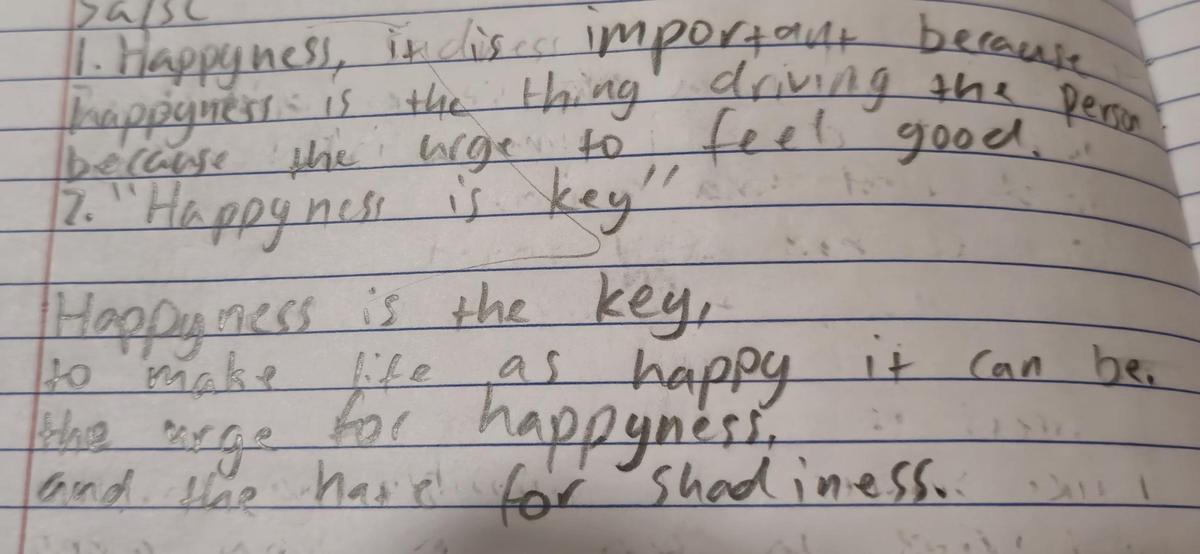 1. Happyness, it is important because
happyness is the thing driving the person
because the urge to feel good.
2. "Happyness is key"
Happyness is the key,
to make life as happy it can be.
the urge for happyness,
and the hate for shadiness.